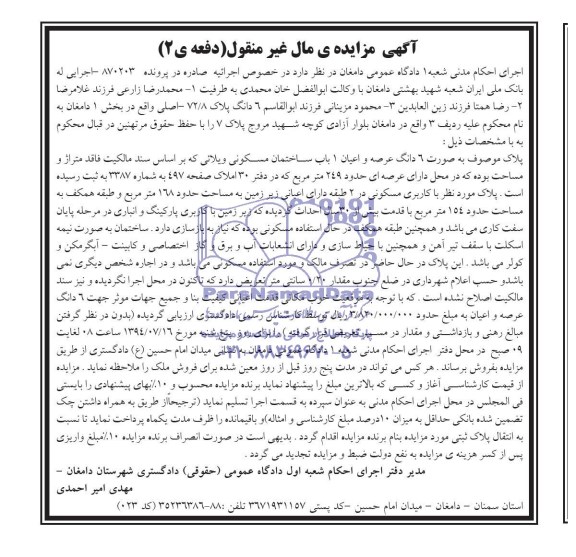 آگهی مزایده ی مال غیر منقول(دفعه ی۲)
اجرای احکام مدنی شعبه۱ دادگاه عمومی دامغان در نظر دارد در خصوص اجرائیه صادره در پرونده ۸۷۰۲۰۳ -اجرایی له
بانک ملی ایران شعبه شهید بهشتی دامغان با وکالت ابوالفضل خان محمدی به طرفیت ۱- محمدرضا زارعی فرزند غلامرضا
۲- رضا همتا فرزند زین العابدین ۳- محمود مزینانی فرزند ابوالقاسم ۶ دانگ پلاک ۷۲/۸ -اصلی واقع در بخش ۱ دامغان به
نام محکوم علیه ردیف ۳ واقع در دامغان بلوار آزادی کوچه شهید مروج پلاک ۷ را با حفظ حقوق مرتهنین در قبال محکوم
به با مشخصات ذیل :
پلاک موصوف به صورت ۶ دانگ عرصه و اعیان ۱ باب ساختمان مسکونی ویلائی که بر اساس سند مالکیت فاقد متراژ و
مساحت بوده که در محل دارای عرصه ای حدود ۲۴۹ متر مربع که در دفتر ۳۰ املاک صفحه ۴۹۷ به شماره ۳۳۸۷ به ثبت رسیده
است . پلاک مورد نظر با کاربری مسکونی در ۲ طبقه دارای اعیانی زیر زمین به مساحت حدود ۱۶۸ متر مربع و طبقه همکف به
مساحت حدود ۱۵۴ متر مربع با قدمت بیش احداث گردیده که زیر زمین با کاربری پارکینگ و انباری در مرحله پایان
سفت کاری می باشد و همچنین طبقه همکف در حال استفاده مسکونی بوده که نیاز به بازسازی دارد . ساختمان به صورت نیمه
اسکلت با سقف تیر آهن و همچنین با محوطه سازی و دارای انشعابات آب و برق و گاز اختصاصی و کابینت - آبگرمکن و
کولر می باشد . این پلاک در حال حاضر در تصرف مالک و مورد استفاده مسکونی می باشد و در اجاره شخص دیگری نمی
باشدو حسب اعلام شهرداری در ضلع جنوب مقدار ۱/۲۰ سانتی متر تعریض دارد که تاکنون در محل اجرا نگردیده و نیز سند
مالکیت اصلاح نشده است . که با توجه به موقعیت بنا و جمیع جهات موثر جهت ۶ دانگ
عرصه و اعیان به مبلغ حدود ریال توسط کارشناس رسمی دادگستری ارزیابی گردیده (بدون در نظر گرفتن
مبالغ رهنی و بازداشتی و مقدار در مسیر تعریض قرار گرفته ) مورخ ۱۳۹۴/۰۷/۱۶ ساعت ۰۸ لغایت
۰۹ صبح در محل دفتر اجرای احکام مدنی شعبه ۱ دادگاه عمومی دامغان به نشانی میدان امام حسین (ع) دادگستری از طریق
مزایده بفروش برساند . هر کس می تواند در مدت پنج روز قبل از روز معین شده برای فروش ملک را ملاحظه نماید . مزایده
از قیمت کارشناسی آغاز و کسی که بالاترین مبلغ را پیشنهاد نماید برنده مزایده محسوب و ۱۰٪بهای پیشنهادی را بایستی
فی المجلس در محل اجرای احکام مدنی به عنوان سپرده به قسمت اجرا تسلیم نماید (ترجیحاًاز طریق به همراه داشتن چک
تضمین شده بانکی حداقل به میزان ۱۰درصد مبلغ کارشناسی و امثاله)و باقیمانده را ظرف مدت یکماه پرداخت نماید تا نسبت
به انتقال پلاک ثبتی مورد مزایده بنام برنده مزایده اقدام گردد . بدیهی است در صورت انصراف برنده مزایده ۱۰٪مبلغ واریزی
پس از کسر هزینه ی مزایده به نفع دولت ضبط و مزایده تجدید می گردد .
مدیر دفتر اجرای احکام شعبه اول دادگاه عمومی (حقوقی) دادگستری شهرستان دامغان -
مهدی امیر احمدی
استان سمنان - دامغان - میدان امام حسین -کد پستی ۳۶۷۱۹۳۱۱۵۷ تلفن :۸۸-۳۵۲۳۶۳۸۶ (کد ۰۲۳)
ParsNamadData